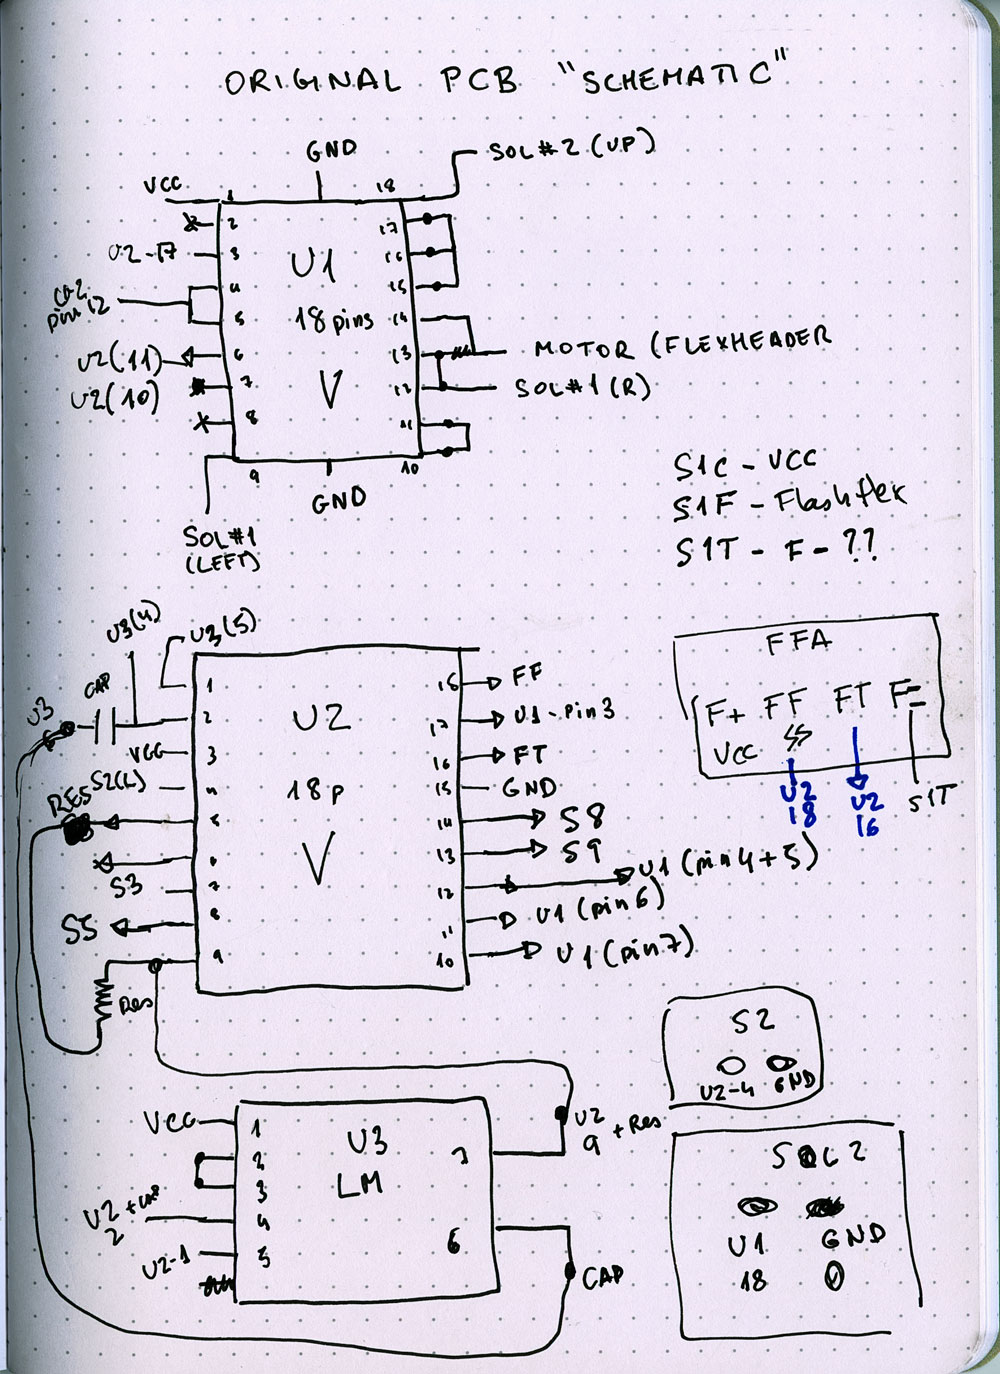 ORIGINAL PCB "SCHEMATIC"
GND
SOL#2 (UP)
VCC
1
18
2
17
U2-17
3
U1
16
4
15
pin 12
18 pins
14
5
U2(11)
6
13
MOTOR (FLEXHEADER
U2(10)
7
V
12
SOL#1(R)
8
11
9
10
GND
SOL#1
(LEFT)
S1C - VCC
S1F - Flashflex
S1T - F - ??
U3(4)
U3(5)
FFA
F+ FF FT F-
VCC
U2
18
U2
16
S1T
U3
CAP
1
18
FF
2
U2
17
U1-pin3
VCC
3
16
FT
S2(L)
4
18p
15
GND
RES
5
14
S8
6
V
13
S9
S3
7
12
U1 (pin4+5)
S5
8
11
U1 (pin6)
9
10
U1 (pin7)
Res
S2
U2-4 GND
VCC
1
U3
7
U2
9 + Res
2
LM
3
U2 + cap
2
4
6
U2-1
5
CAP
SOL 2
U1 GND
18